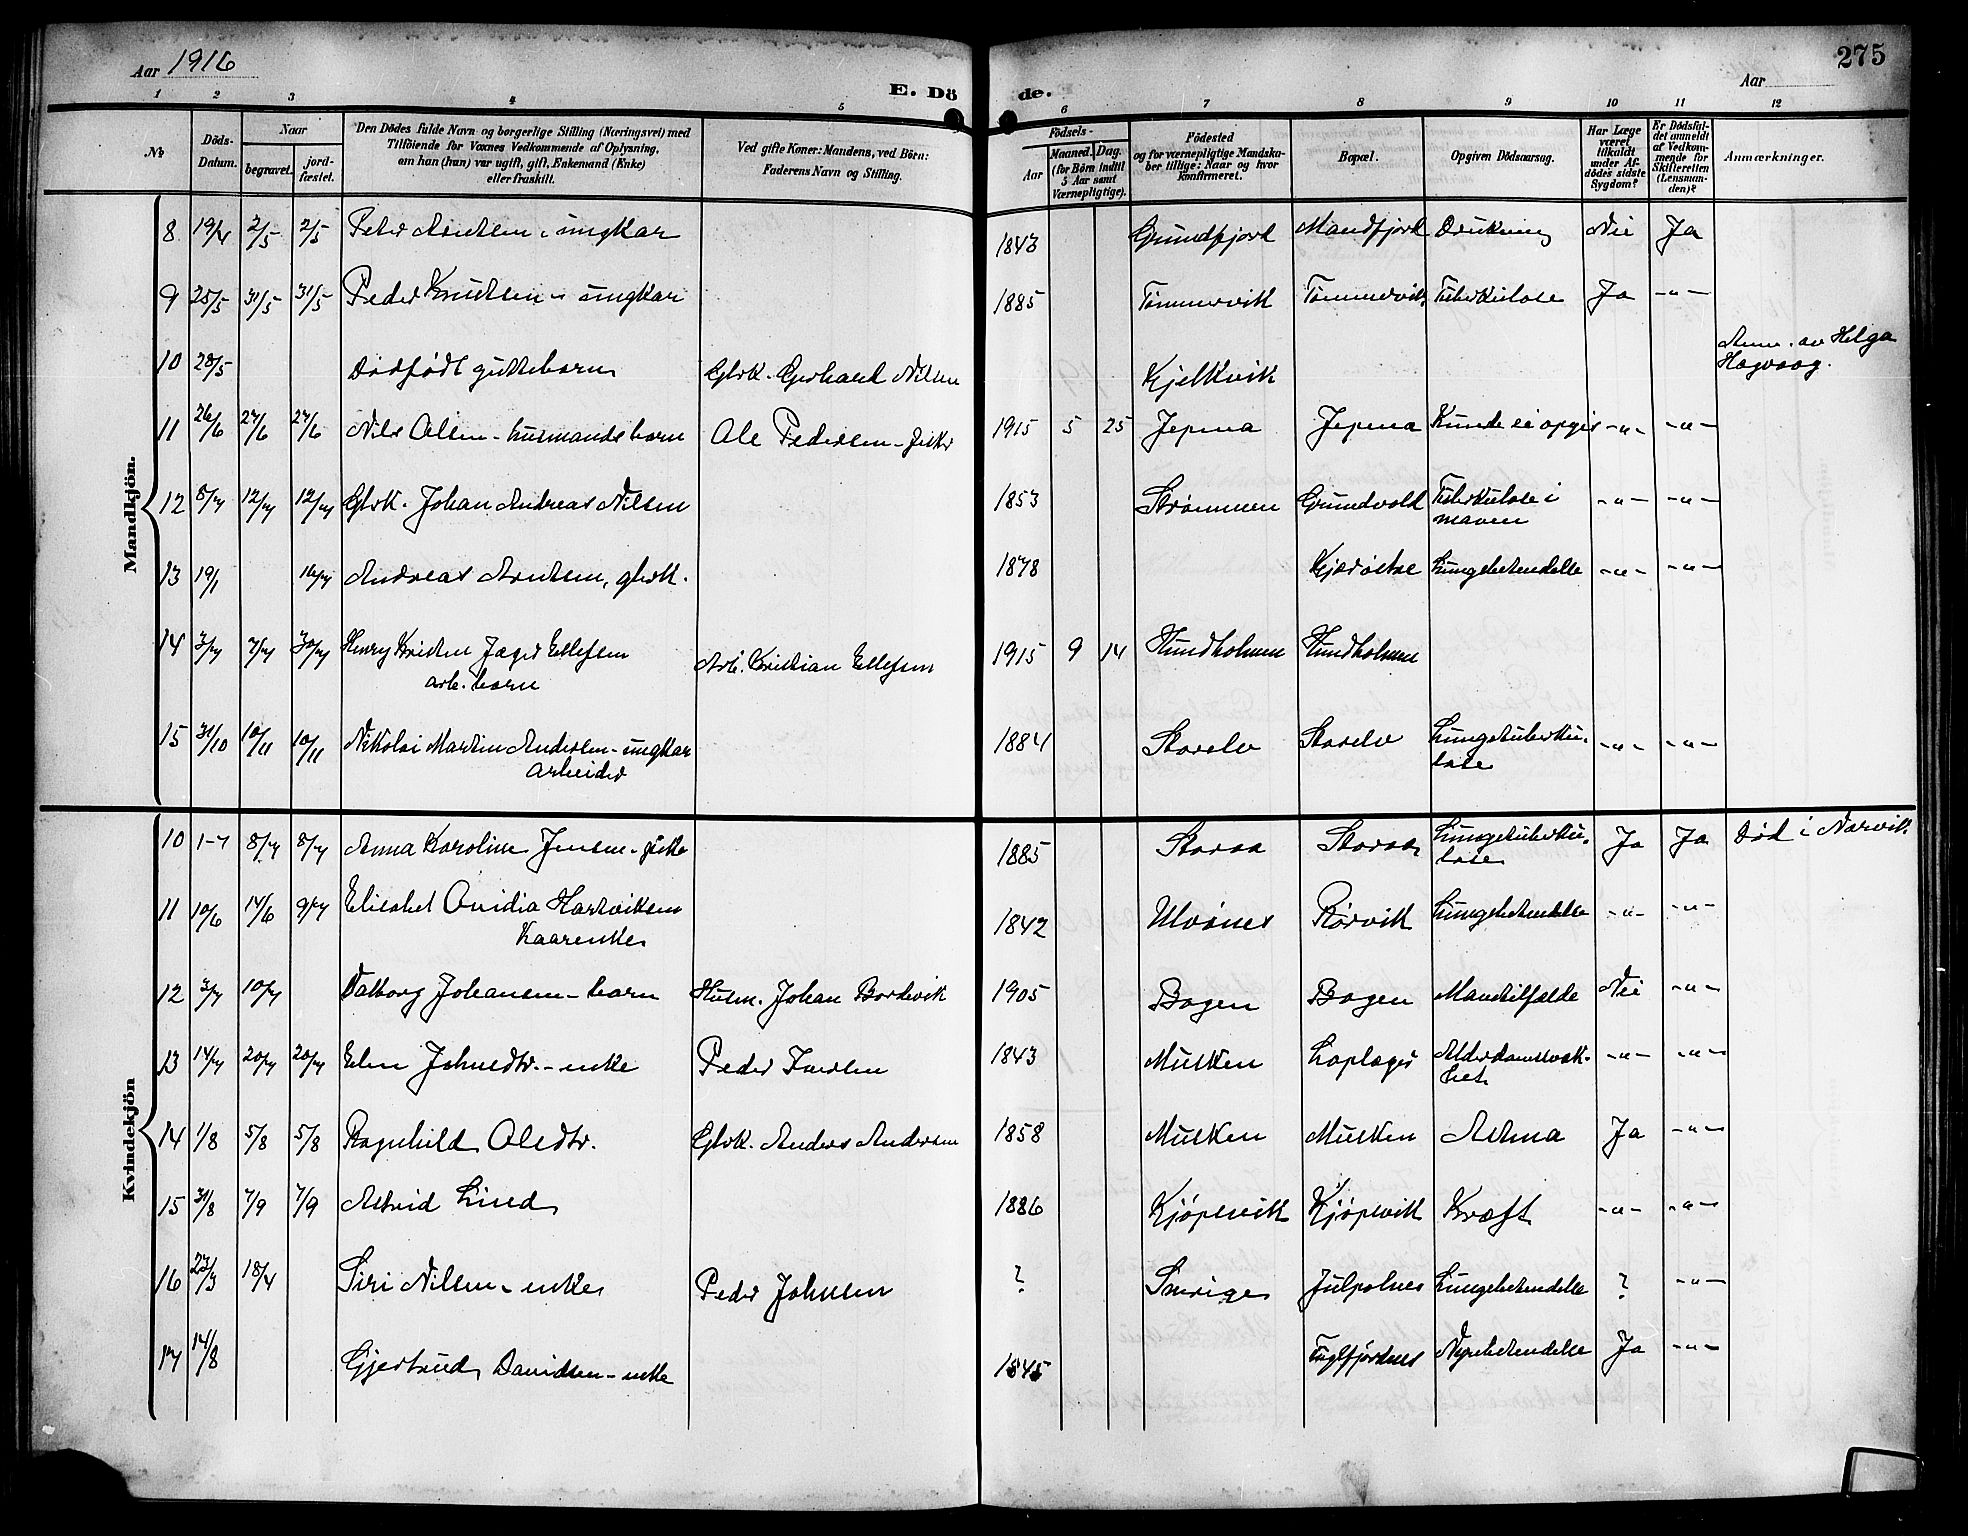 Aar 1916
275
Aar
1 2 3 4 5 6 7 8 9 10 11 12
E. Dö de.
№
Döds-Datum.
Naar
begravet.
jord-fæstet.
Den Dödes fulde Navn og borgerlige Stilling (Næringsvei) med
Tilföiende for Voxnes Vedkommende af Oplysning,
om han (hun) var ugift, gift, Enkemand (Enke)
eller fraskilt.
Ved gifte Koner: Mandens, ved Börn:
Faderens Navn og Stilling.
Födsels-
Aar
Maaned. Dag.
(for Börn indtil
5 Aar samt
Værnepligtige).
Födested
og for værnepligtige Mandska-
ber tillige: Naar og hvor
konfirmeret.
Bopæl.
Opgiven Dödsaarsag.
Har Læge
været
tilkaldt
under Af-
dödes sidste
Sygdom?
Er Dödsfal-
det anmeldt
af Vedkom-
mende for
Skifteretten
(Lensman-
den)?
Anmærkninger.
Mandkjön.
8 19/4 2/5 2/5 Peter Arntsen, ungkar 1843 Grundfjord Mandfjord Drukning Nei Ja
9 25/5 31/5 31/5 Peder Knutsen - ungkar 1885 Tømmervik Tømmervik Tuberkulose Ja -"-
10 28/5 Dødfødt guttebarn Gbrk. Gerhard Nilsen Kjelkvik Anm. av Helga
Hagvaag.
11 26/6 27/6 27/6 Nils Olsen - husmandsbarn Ole Pedersen - fisker 1915 5 25 Jepma Jepma Kunde ei opgis -"- -"-
12 8/7 12/7 12/7 Gbrk. Johan Andreas Nilsen 1853 Strømmen Grundvold Tuberkulose i
maven -"- -"-
13 19/1 16/7 Andreas Arntsen, gbrk. 1878 Lungebetendelse -"- -"-
14 3/7 7/7 30/7 Henry Kristen Jæger Ellefsen
arb. barn Arb. Kristian Ellefsen 1915 9 14 Hundholmen Hundholmen
15 31/10 10/11 10/11 Nikolai Martin Andersen - ungkar
arbeider 1884 Storelv Storelv Lungetuberku-
lose -"- -"-
Kvindekjön
10 1-7 8/7 8/7 Anna Karoline Jensen - 1885 Storaa Storaa Lungetuberku-
lose Ja Ja Død i Narvik
11 10/6 14/6 9/7 Elisabet Ovidia Hartviksen
kaarenke 1842 Ulvønes Rørvik Lungebetendelse -"- -"-
12 3/7 10/7 Valborg Johansen - barn Husm. Johan Bordevik 1905 Bogen Bogen Mavetilfælde Nei -"-
13 14/7 20/7 20/7 Elen Johnsdtr. - enke Peder Iversen 1843 Musken Loplæger Alderdomssvak-
het -"- -"-
14 1/8 5/8 5/8 Ragnhild Olsdtr. Gbrk. Anders Andersen 1858 Musken Musken Astma Ja -"-
15 31/8 7/9 7/9 Astrid Lind 1886 Kjøpsvik Kjøpsvik Kræft -"- -"-
16 27/3 18/4 Siri Nilsen - enke Peder Johnsen ? Sverige Julpolnes Lungebetendelse ? -"-
17 14/8 Gjertrud Davidsen - enke 1845 Fuglfjordnes Nyrebetendelse Ja -"-